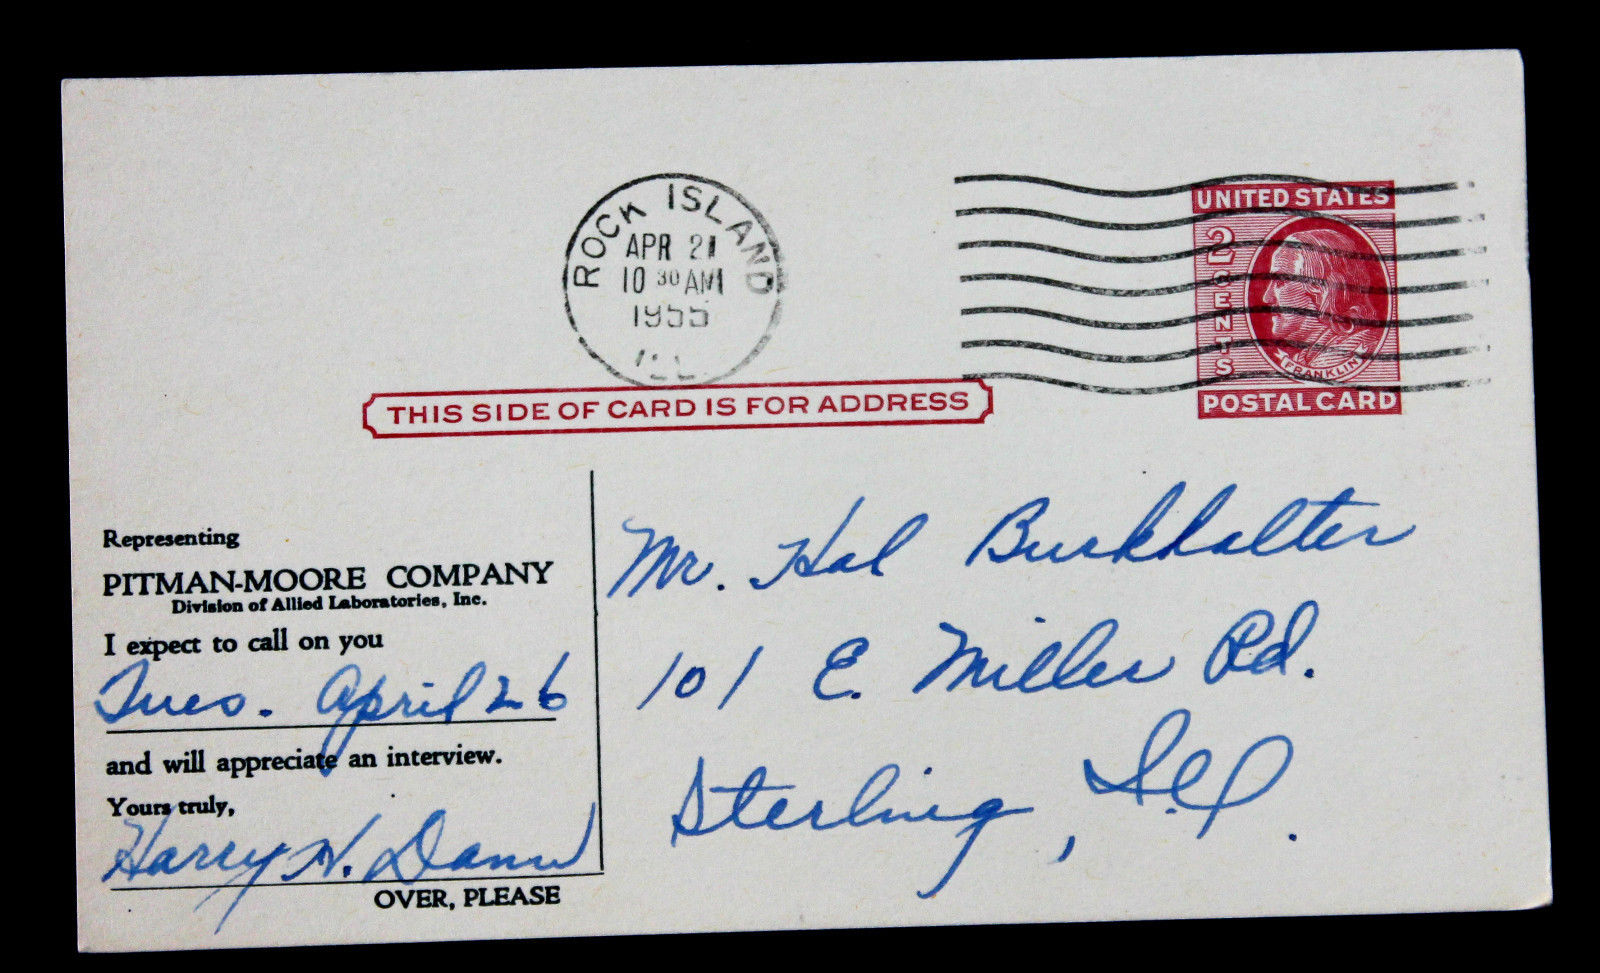 ROCK ISLAND
APR 21
10 30 AM
1955
ILL.
UNITED STATES
2 CENTS
FRANKLIN
POSTAL CARD
THIS SIDE OF CARD IS FOR ADDRESS
Representing
PITMAN-MOORE COMPANY
Division of Allied Laboratories, Inc.
I expect to call on you
Tues. April 26
and will appreciate an interview.
Yours truly,
Harry H.
OVER, PLEASE
Mr. Hal Burkhalter
101 E. Miller Rd.
Sterling, Ill.